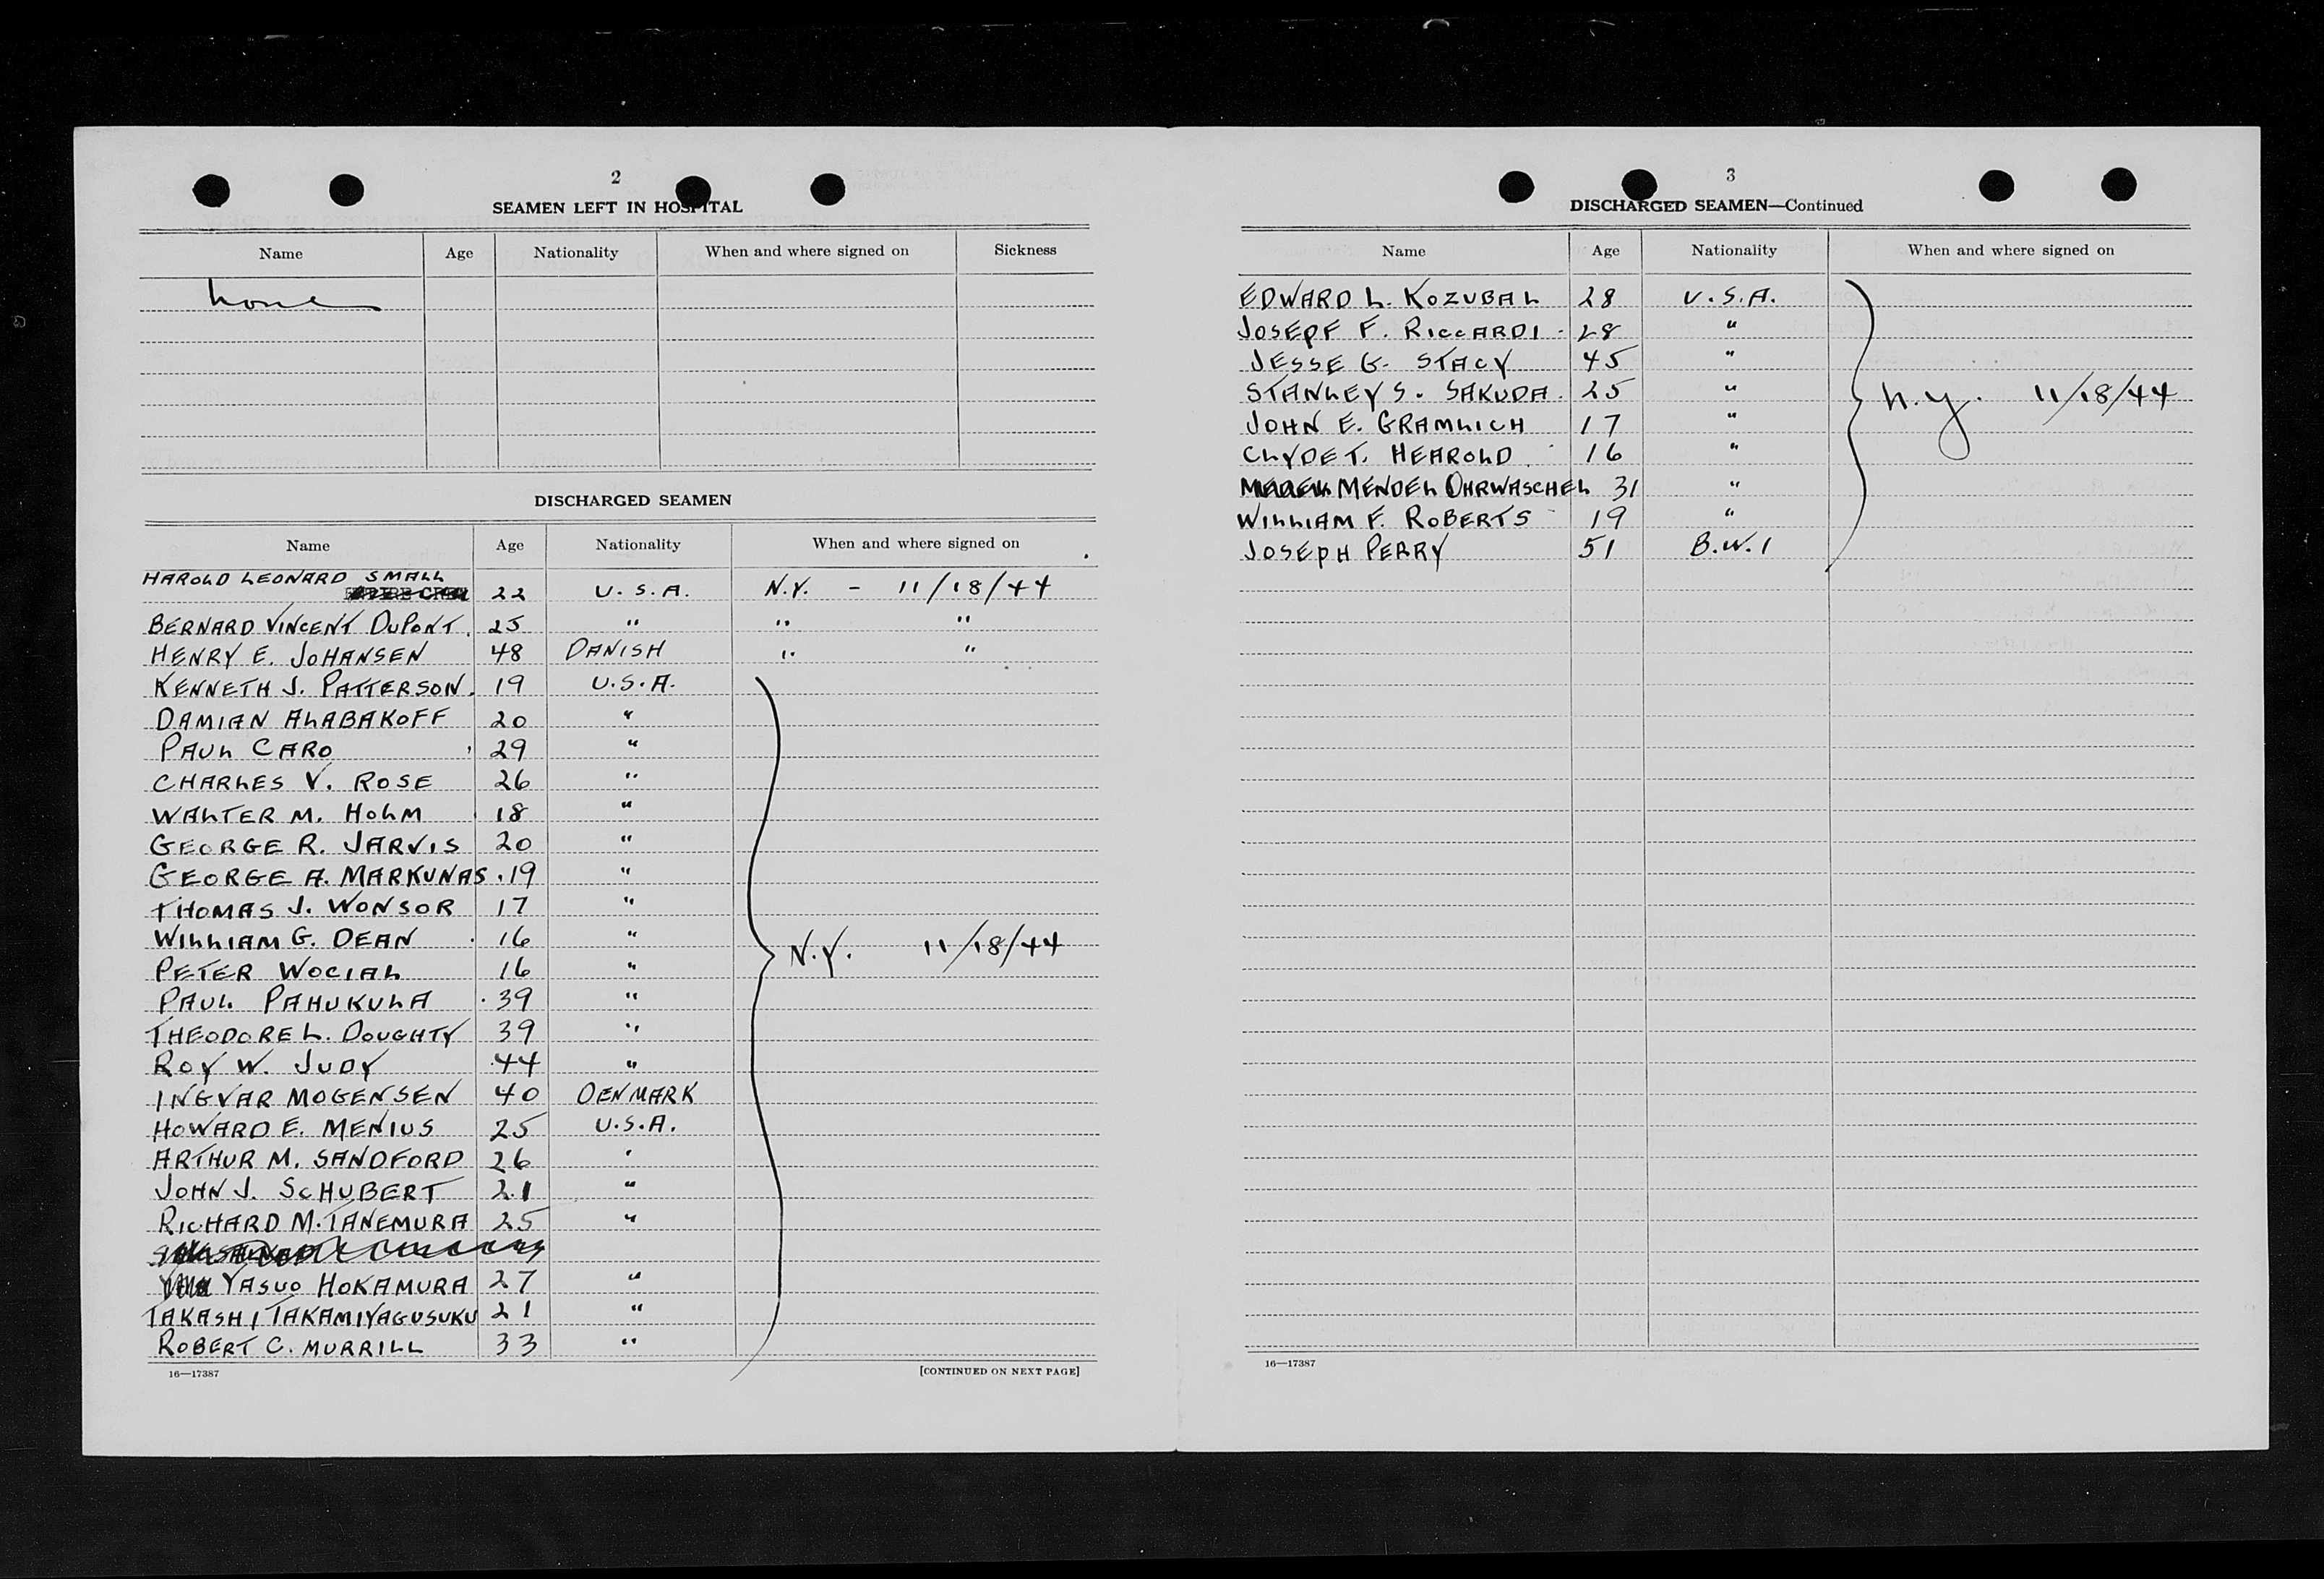 2
SEAMEN LEFT IN HOSPITAL
Name Age Nationality When and where signed on Sickness
none
DISCHARGED SEAMEN
Name Age Nationality When and where signed on
HAROLD LEONARD SMALL
22 U.S.A. N.Y. - 11/18/44
BERNARD VINCENT DUPONT. 25 " " "
HENRY E. JOHANSEN 48 DANISH " "
KENNETH J. PATTERSON. 19 U.S.A.
DAMIAN ALABAKOFF 20 "
PAUL CARO 29 "
CHARLES V. ROSE 26 "
WALTER M. HOLM 18 "
GEORGE R. JARVIS 20 "
GEORGE A. MARKUNAS 19 "
THOMAS J. WONSOR 17 "
WILLIAM G. DEAN 16 " N.Y. 11/18/44
PETER WOCIAL 16 "
PAUL PAHUKULA 39 "
THEODORE L. DOUGHTY 39 "
ROY W. JUDY 44 "
INGVAR MOGENSEN 40 DENMARK
HOWARD E. MENIUS 25 U.S.A.
ARTHUR M. SANDFORD 26 "
JOHN J. SCHUBERT 21 "
RICHARD M. TANEMURA 25 "
YASUO HOKAMURA 27 "
TAKASHI TAKAMIYAGUSUKU 21 "
ROBERT C. MURRILL 33 "
16—17387 [CONTINUED ON NEXT PAGE]
3
DISCHARGED SEAMEN—Continued
Name Age Nationality When and where signed on
EDWARD L. KOZUBAL 28 U.S.A.
JOSEPF F. RICCARDI 28 "
JESSE G. STACY 45 "
STANLEY S. SAKUDA. 25 " N.Y. 11/18/44
JOHN E. GRAMLICH 17 "
CLYDE T. HEAROLD 16 "
MENDEL OHRWASCHEL 31 "
WILLIAM F. ROBERTS 19 "
JOSEPH PERRY 51 B.W.I
16—17387